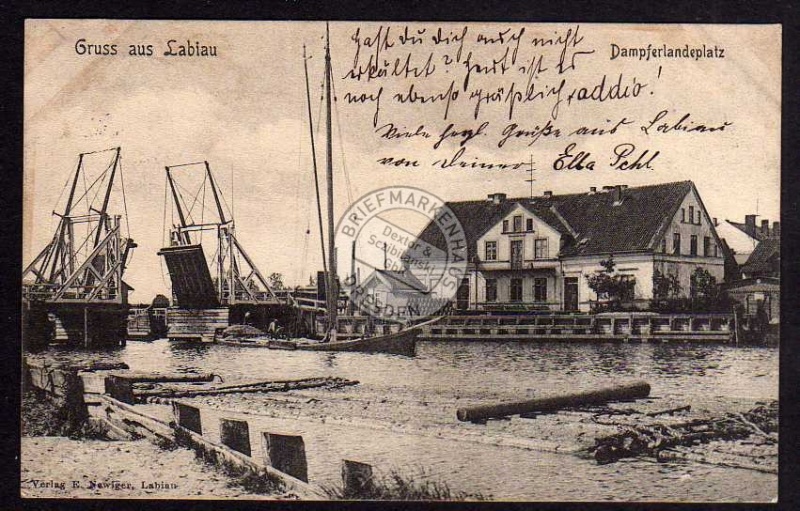 Gruss aus Labiau
Dampferlandeplatz
Hast du dich auch nicht
erkältet? Heut ist es
noch ebenso gräßlich, addio!
Viele herzl. Grüße aus Labiau
von Deiner Ella Pehl
BRIEFMARKENHAUS
DRESDEN
Verlag E. Nawiger, Labiau